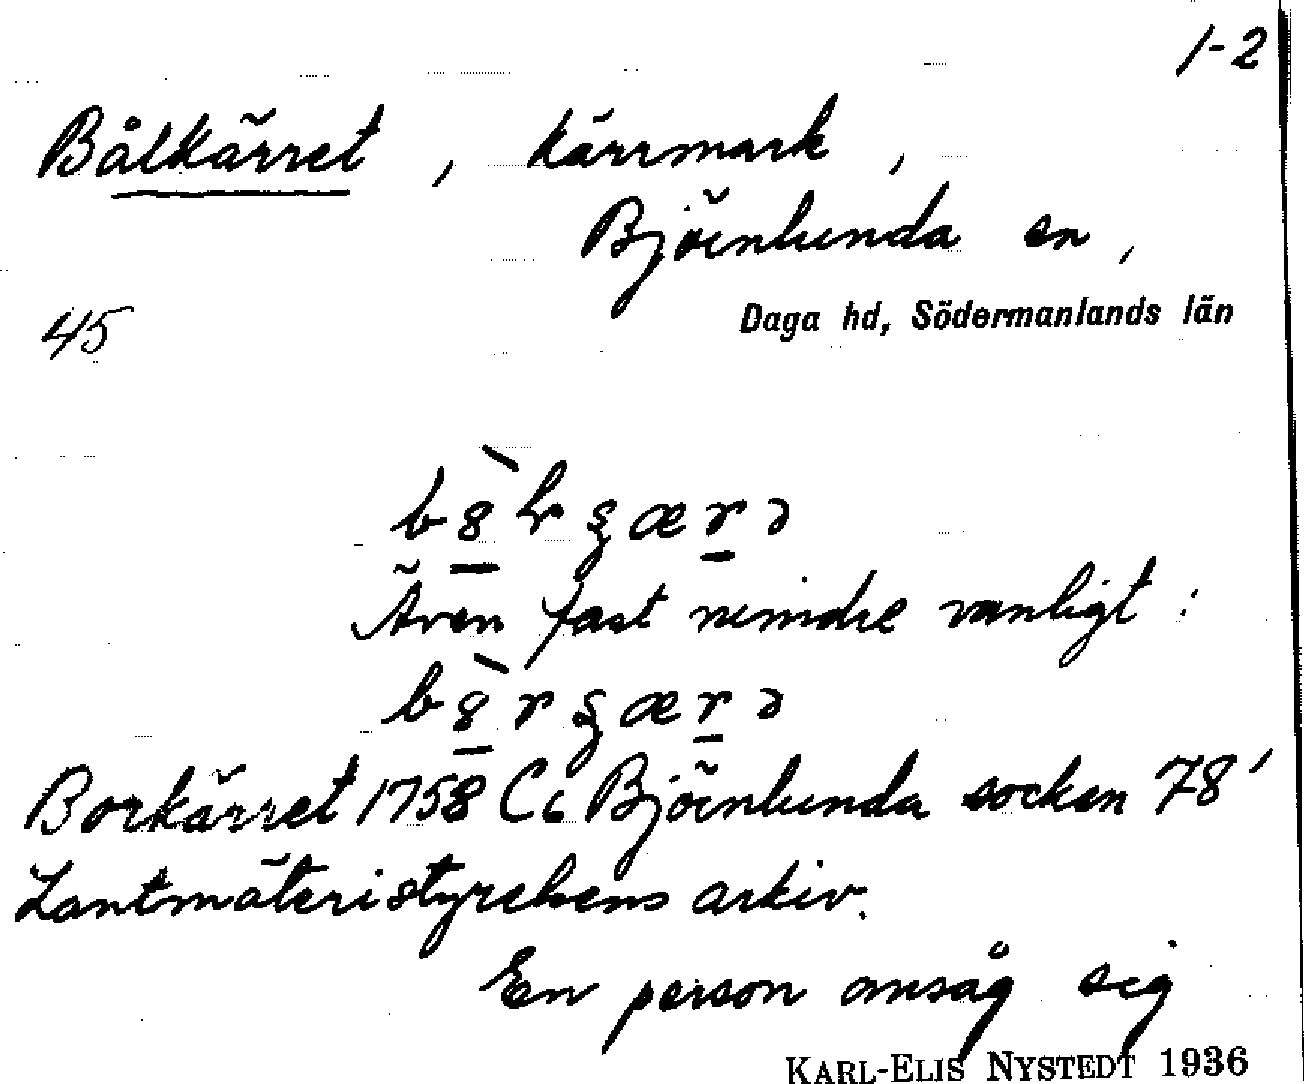 1-2
Bålkärret, kärrmark,
Björnlunda sn,
45
Daga hd, Södermanlands län
Även fast mindre vanligt:
Borkärret 1758 C6 Björnlunda socken 78'
Lantmäteristyrelsens arkiv.
En person ansåg sig
KARL-ELIS NYSTEDT 1936